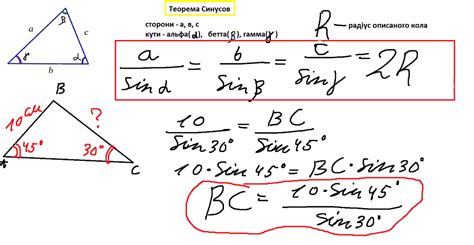 Теорема Синусов
сторони - а, в, с
кути - альфа(α), бетта(β), гамма(γ)
R — радіус описаного кола
a c b
β γ α
a/sinα = b/sinβ = c/sinγ = 2R
B
10 см ?
45° 30°
A C
10/sin30° = BC/sin45°
10·sin45° = BC·sin30°
BC = 10·sin45°/sin30°